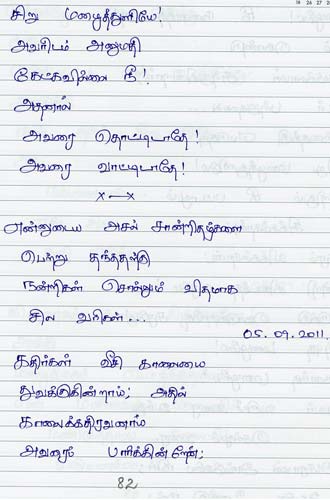 சிறு மழைத்துளியே!
அவரிடம் அனுமதி
கேட்கவில்லை நீ!
அதனால்
அவரை தொட்டிடாதே!
அவரை வாட்டிடாதே!
x—x
என்னுடைய அசல் சான்றிதழ்களை
பெற்று தந்ததற்கு
நன்றிகள் சொல்லும் விதமாக
சில வரிகள்...
05.09.2011.
கதிர்கள் வீசி காலையை
துவக்குகின்றாய்; அதில்
காலைக்கதிரவனாய்
அவரைப் பார்க்கின்றேன்;
82